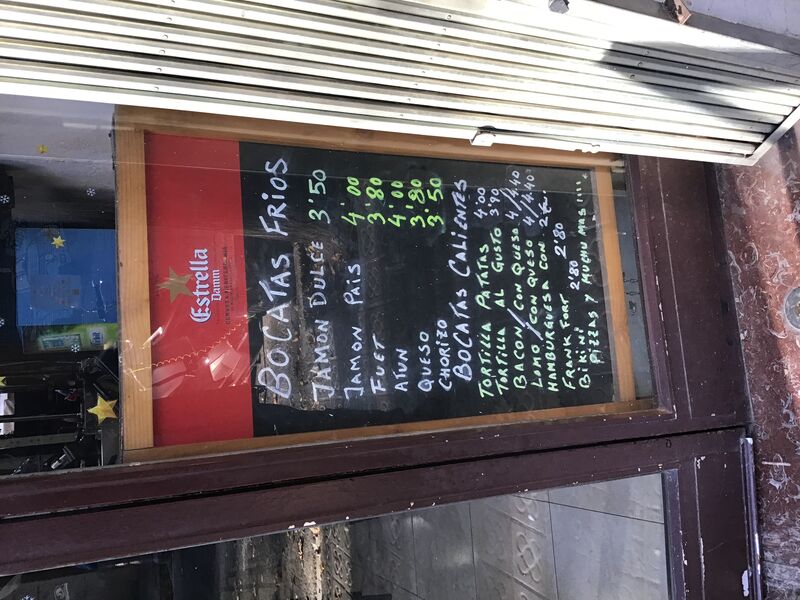 Estrella
Damm
BOCATAS FRIOS
JAMON DULCE 3'50
JAMON PAIS 4'00
FUET 3'80
ATUN 4'00
QUESO 3'80
CHORIZO 3'50
BOCATAS CALIENTES
TORTILLA PATATAS 4'00
TORTILLA AL GUSTO 3'90
BACON/CON QUESO 4/4'40
LOMO/CON QUESO 4/4'40
HAMBURGUESA CON
FRANK FORT 2'80
BIKINI 2'80
PIZZAS Y MUCHO MAS !!!!